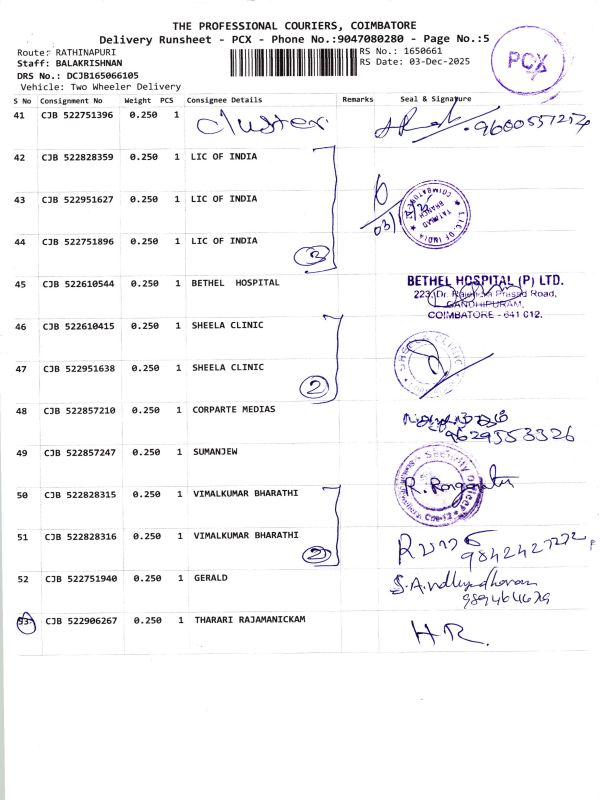 THE PROFESSIONAL COURIERS, COIMBATORE
Delivery Runsheet - PCX - Phone No.:9047080280 - Page No.:5
Route: RATHINAPURI
RS No.: 1650661
Staff: BALAKRISHNAN
RS Date: 03-Dec-2025
DRS No.: DCJB165066105
Vehicle: Two Wheeler Delivery
PCX
S No Consignment No Weight PCS Consignee Details Remarks Seal & Signature
41 CJB 522751396 0.250 1 cluster
42 CJB 522828359 0.250 1 LIC OF INDIA
43 CJB 522951627 0.250 1 LIC OF INDIA
44 CJB 522751896 0.250 1 LIC OF INDIA
3
L.I.C. OF INDIA
BRANCH
COIMBATORE
45 CJB 522610544 1 BETHEL HOSPITAL
0.250
BETHEL HOSPITAL (P) LTD.
223, Dr. Rajendra Prasad Road,
GANDHIPURAM,
COIMBATORE - 641 012.
46 CJB 522610415 0.250 1 SHEELA CLINIC
47 CJB 522951638 0.250 1 SHEELA CLINIC
2
SHEELA CLINIC
48 CJB 522857210 0.250 1 CORPARTE MEDIAS
9629553326
49 CJB 522857247 0.250 1 SUMANJEW
Security Officer
50 CJB 522828315 0.250 1 VIMALKUMAR BHARATHI
51 CJB 522828316 0.250 1 VIMALKUMAR BHARATHI
2
52 CJB 522751940 0.250 1 GERALD
53 CJB 522906267 0.250 1 THARARI RAJAMANICKAM
H R.